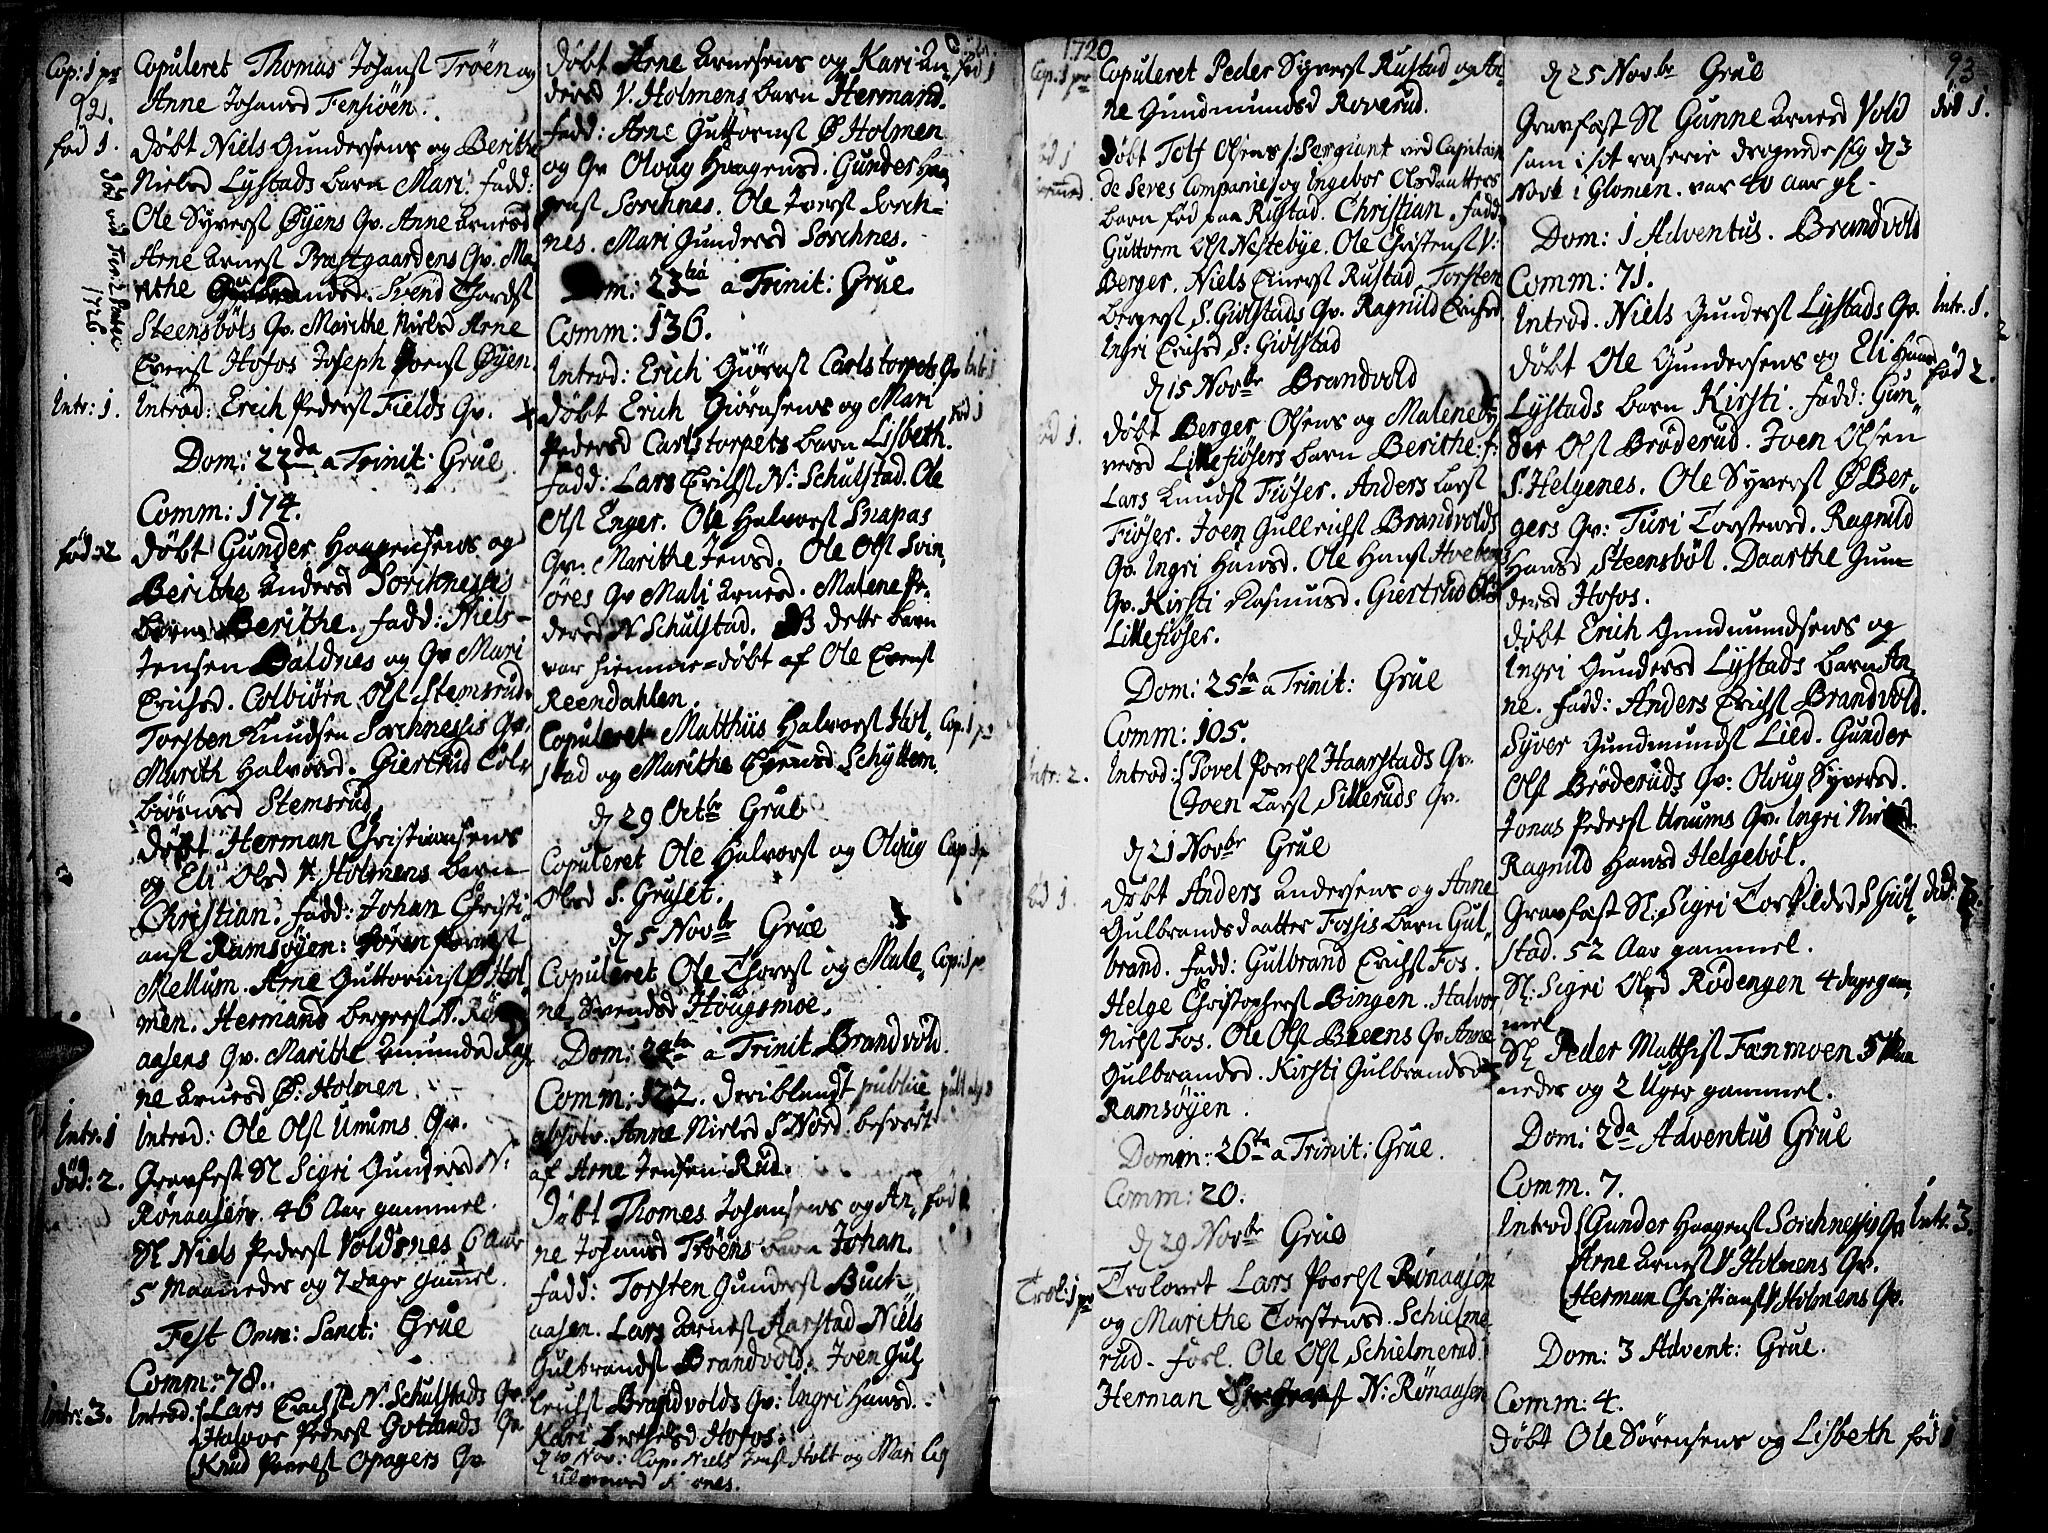 Cop: 1 pr
92.
fød 1.
Copuleret Thomas Johanst Trøen og
Anne Johansd Fensiøen.
Døbt Niels Gundersens og Berithe
Nielsd Lystads barn Mari. fadd:
Ole Syverst Øyens Qv. Anne Arnesd
Arne Arnest Præstgaardens Qv. Ma-
rthe Svend Thordst
Steensbøls Qv. Marithe Nielsd Arne
Evenst Hofos Joseph Øyen.
1726.
Intr: 1.
Introd: Erich Pederst Fields Qv.
Dom: 22da a Trinit: Grue.
Comm: 174.
fød: 2
Døbt Gunder Haagensens og
Berithe Andersd Sorchnessis
barn Berithe. fadd: Niels
Jensen Baldnes og Qv Mari
Erichsd. Colbiørn Olst Stemsrud
Torsten Knudsen Sorchnessis Qv.
Marith Halvorsd. Giertrud Col-
biørnsd Stemsrud
Døbt Herman Christiansens
og Eli Olsd V: Holmens barn
Christian. fadd: Johan Christi-
anst Ramsøyen: Søren
Mellum. Arne Guttormst Ø Hol-
men. Hermand bergerst N. Rø
aasens Qv. Marithe Amundsd
ne Arnesd Ø: Holmen
Intr: 1
Introd: Ole Olst Unums Qv.
død: 2.
Gravfæst Sl Sigri Gundersd N:
Rønaasen. 46 Aar gammel.
Sl Niels Pederst Voldsnes 6 Aar
5 Maaneder og 7 dage gammel.
Fest Omn: Sanct: Grue
Comm: 78.
Intr: 3.
Introd. Lars Erichst N. Schulstads Qv.
Halvor Pederst Gotlands Qv
Knud Povelst Opagers Qv
Døbt Arne Arnesens og Kari An-
dersd V. Holmens barn Hermand.
fød 1
fadd: Arne Guttormst Ø Holmen
og Qv Oloug Haagensd. Gunder Haa-
genst Sorchnes. Ole Iverst Sorch-
nes. Mari Gundersd Sorchnes.
Dom: 23tia a Trinit: Grue.
Comm: 136.
Introd: Erich Giørnst Carlstorpets Qv
Intr: 1
Døbt Erich Giørnsens og Mari
fød 1
Pedersd Carlstorpets barn Lisbeth.
fadd: Lars Erichst N: Schulstad. Ole
Olst Enger. Ole Halvorst Snapas
Qv. Marithe Jensd. Ole Olst Svin-
øres Qv Mali Arnesd. Malene Pe-
dersd N Schulstad. NB dette barn
var hiemme=døbt af Ole Evenst
Reendahlen.
Copuleret Matthiis Halvorst Hol-
Cop. 1 pr
stad og Marithe Evensd Schyttem.
d 29 Octbr Grue
Copuleret Ole Halvorst og Oloug
Cop. 1 p
Olsd S. Gruset.
d 5 Novbr Grue
Copuleret Ole Thorst og Male-
Cop: 1 p
ne Svendsd Hougsmoe.
Dom: 24ta a Trinit. Brandvold.
Comm: 122. deriblandt publice
absolv. Anne Nielsd S Nord. besvært
af Arne Jensen Rud.
Døbt Thomes Johansens og An-
fød 1
ne Johansd Trøens barn Johan.
fadd: Torsten Gunderst Buch-
aasen. Lars Arnest Aarstad Niels
Gulbrandst Brandvold. Joen Gul-
brandst Brandvolds Qv: Ingri Hansd.
Kari Berthelsd Hofos.
d 10 Nov: Cop. Niels Jenst Holt og Mari
1720
Cop. 1 pr
Copuleret Peder Syverst Rustad og An-
ne Gundmundsd Roverud.
fød 1
Døbt Tolf Olsens /: Sergiant ved Capitain
de Seves Compagnie/ og Ingebor Olsdaatters
barn fød paa Rustad. Christian. fadd:
Guttorm Olst Nestebye. Ole Christenst V:
Berger. Niels Einerst Rustad Torsten
bergerst S. Giølstads Qv. Ragnild Erichsd
Ingri Erichsd S: Giølstad
d 15 Novbr Brandvold
fød 1.
Døbt Berger Olsens og Malene Sy-
versd Lillefiøsers barn Berithe. f:
Lars Knudst Fiøser. Anders Larst
Fiøser. Joen Gullrichst Brandvolds
Qv. Ingri Hansd. Ole Hanst Hveberg
Qv. Kirsti Rasmusd. Giertrud Olsd
Lillefiøser.
Dom: 25ta a Trinit: Grue
Comm: 105.
Intr: 2.
Introd: Povel Povelst Haarstads Qv.
Joen Larst Silleruds Qv.
d 21 Novbr Grue
fød 1.
Døbt Anders Andersens og Anne
Gulbrandsdaatter Fossis barn Gul-
brand. fadd: Gulbrand Erichst Fos.
Helge Christopherst Bingen. Halvor
Nielst Fos. Ole Olst Breens Qv Anne
Gulbrandsd. Kirsti Gulbrandsd
Ramsøyen.
Domm: 26ta a Trinit: Grue.
Comm: 20.
d 29 Novbr Grue
Trol: 1 pr
Trolovet Lars Povelst Rønaasen
og Marithe Torstensd. Schielme-
rud. forl. Ole Olst Schielmerud.
Herman N: Rønaasen
93
d 25 Novbr Grue
Gravfæst Sl Gunne Arnesd Vold
død 1.
som i sit raserie drognede sig d 3
Novb i Glomen. var 40 Aar gl.
Dom: 1 Adventus. Brandvold
Comm: 71.
Introd. Niels Gunderst Lystads Qv.
Intr. 1.
Døbt Ole Gundersens og Eli Hansd
fød 2.
Lystads barn Kirsti. fadd: Gun-
der Olst Brøderud. Joen Olsen
S: Helgenes. Ole Syverst Ø Ber-
gers Qv: Turi Torstensd. Ragnild
Hansd Steensbøl. Daarthe Gun-
dersd Hofos.
Døbt Erich Gundmundsens og
Ingri Gundersd Lystads barn An-
ne. fadd: Anders Erichst Brandvold.
Syver Gundmundst Lied. Gunder
Olst Brøderuds Qv: Oloug Syversd.
Jonas Pederst Unums Qv. Ingri Nielsd.
Ragnild Hansd Helgebøl.
Gravfæst Sl. Sigri Torkildsd S Giøl-
død: 3.
stad. 52 Aar gammel.
Sl: Sigri Olsd Rødengen 4 dage gam-
mel
Sl Peder Matthist Fænmoen 5 Maa-
neder og 2 Uger gammel.
Dom: 2da Adventus Grue
Comm. 7.
Introd Gunder Haagenst Sorchnessis Qv
Intr. 3.
Arne Arnest V Holmens Qv.
Herman Christianst V Holmens Qv.
Dom: 3 Advent: Grue.
Comm: 4.
Døbt Ole Sørensens og Lisbeth
fød 1